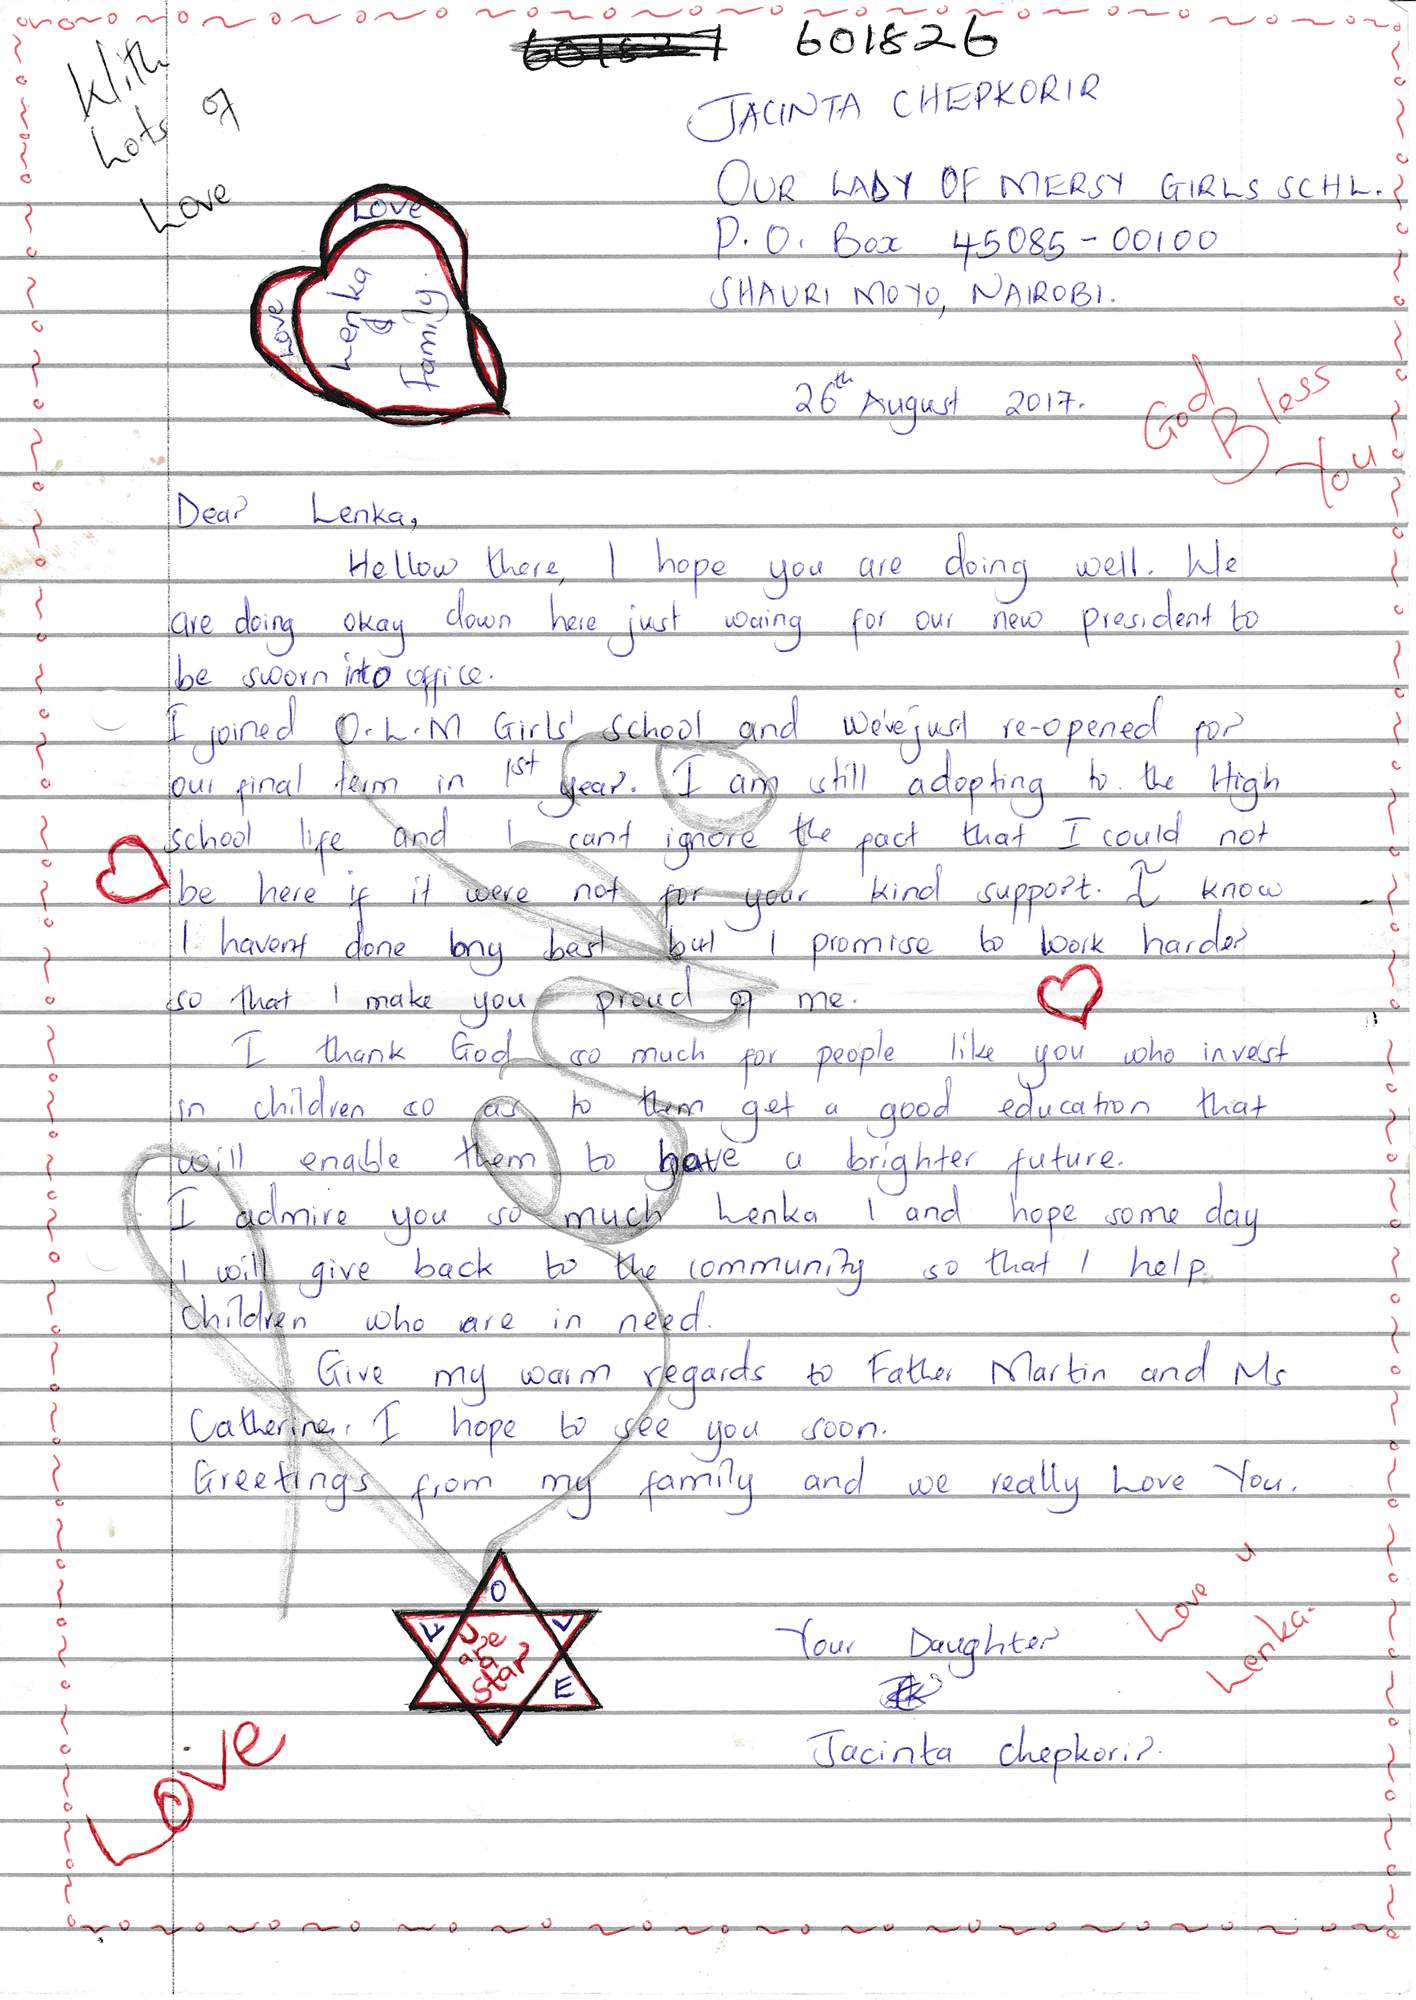 601827 601826
With
Lots of
Love
JACINTA CHEPKORIR
OUR LADY OF MERSY GIRLS SCHL.
P.O. Box 45085-00100
SHAURI MOYO, NAIROBI.
Love
Love
Lenka
&
Family.
26th August 2017.
God
Bless
You
Dear Lenka,
Hellow there, I hope you are doing well. We
are doing okay down here just waing for our new president to
be sworn into office.
I joined O.L.M Girls' school and We've just re-opened for
our final term in 1st year. I am still adopting to the High
school life and I cant ignore the fact that I could not
be here if it were not for your kind support. I know
I havent done my best but I promise to work harder
so that I make you proud of me.
I thank God so much for people like you who invest
in children so as to them get a good education that
will enable them to have a brighter future.
I admire you so much Lenka I and hope some day
I will give back to the community so that I help
children who are in need.
Give my warm regards to Father Martin and Ms
Catherine. I hope to see you soon.
Greetings from my family and we really Love You.
L O V E
U are a Star
Your Daughter
Jacinta chepkorir.
Love u
Lenka.
Love